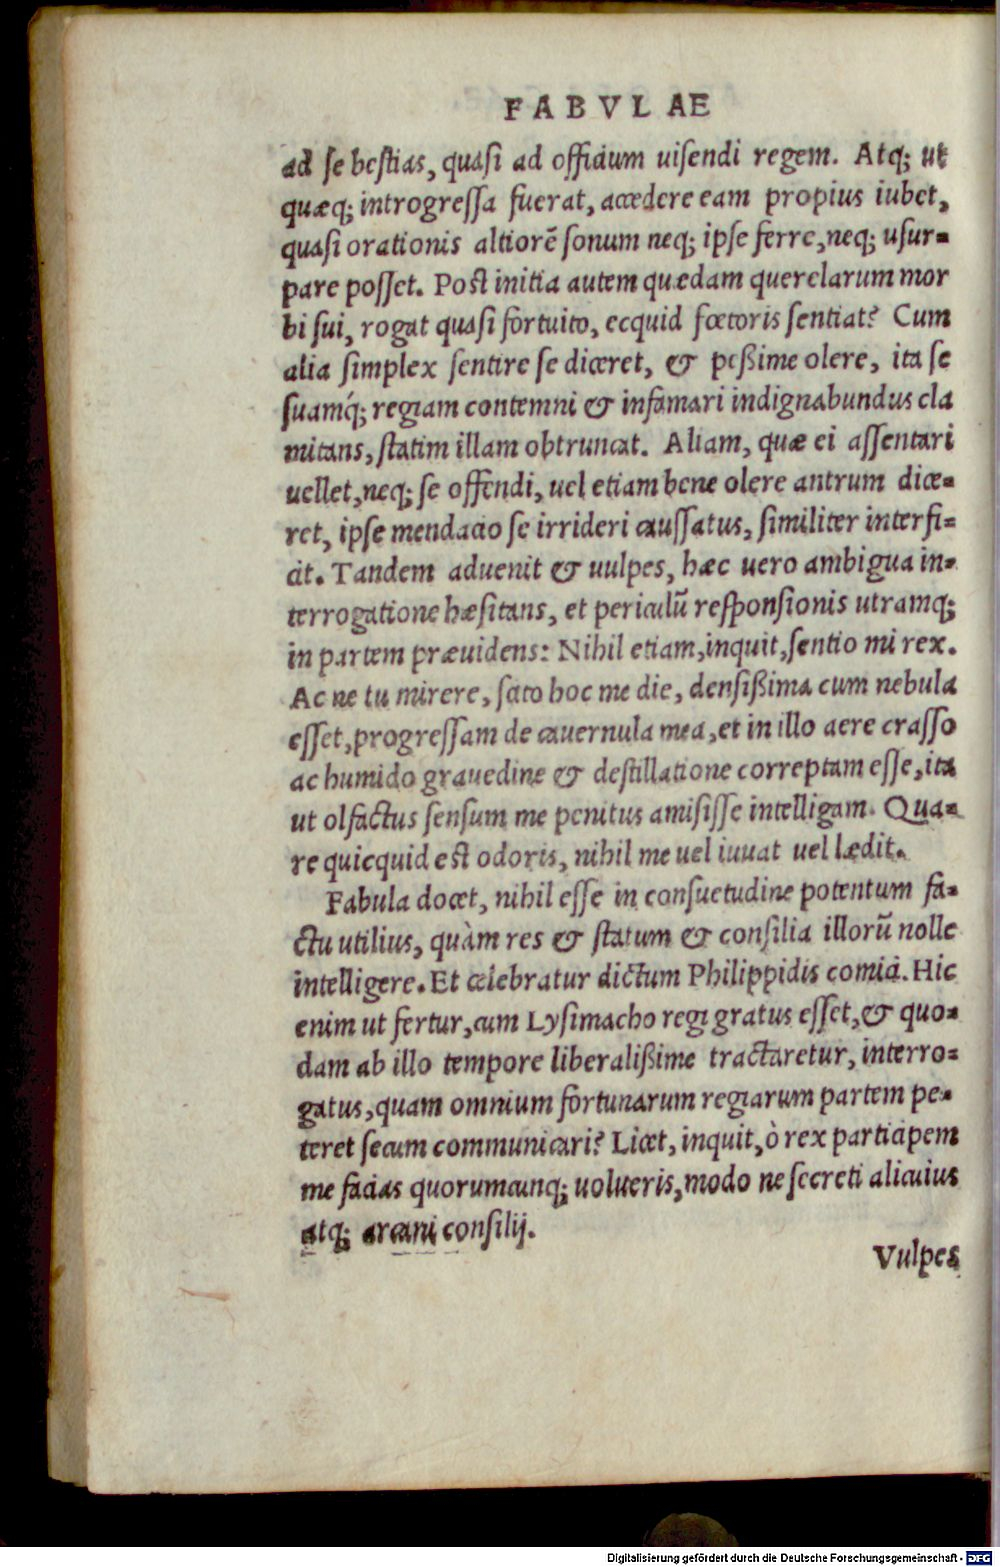 FABVLAE
ad se bestias, quasi ad officium uisendi regem. Atq; ut
quæq; introgressa fuerat, accedere eam propius iubet,
quasi orationis altiorē sonum neq; ipse ferre, neq; usur-
pare posset. Post initia autem quædam querelarum mor
bi sui, rogat quasi fortuito, ecquid fœtoris sentiat? Cum
alia simplex sentire se diceret, & peßime olere, ita se
suamq́; regiam contemni & infamari indignabundus cla
mitans, statim illam obtruncat. Aliam, quæ ei assentari
uellet, neq; se offendi, uel etiam bene olere antrum dice-
ret, ipse mendacio se irrideri caussatus, similiter interfi-
cit. Tandem aduenit & uulpes, hæc uero ambigua in-
terrogatione hæsitans, et periculū responsionis utramq;
in partem præuidens: Nihil etiam, inquit, sentio mi rex.
Ac ne tu mirere, scito hoc me die, densißima cum nebula
esset, progressam de cauernula mea, et in illo aere crasso
ac humido grauedine & destillatione correptam esse, ita
ut olfactus sensum me penitus amisisse intelligam. Qua-
re quicquid est odoris, nihil me uel iuuat uel lædit.
Fabula docet, nihil esse in consuetudine potentum fa-
ctu utilius, quàm res & statum & consilia illorū nolle
intelligere. Et celebratur dictum Philippidis comici. Hic
enim ut fertur, cum Lysimacho regi gratus esset, & quo-
dam ab illo tempore liberalißime tractaretur, interro-
gatus, quam omnium fortunarum regiarum partem pe-
teret secum communicari? Licet, inquit, ò rex participem
me facias quorumcunq; uolueris, modo ne secreti alicuius
atq; arcani consilij.
Vulpes
Digitalisierung gefördert durch die Deutsche Forschungsgemeinschaft - DFG